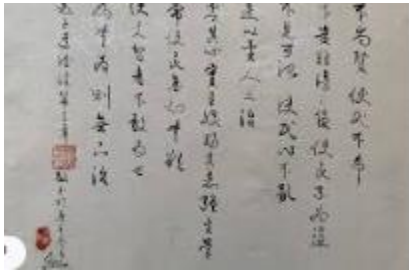 不尚賢 使民不爭
不貴難得之貨 使民不為盜
不見可欲 使民心不亂
是以聖人之治
虛其心 實其腹 弱其志 強其骨
常使民無知無欲
使夫智者不敢為也
為無為 則無不治
老子道德經第三章